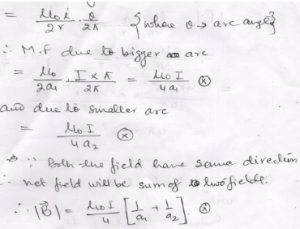 = μ₀i/2r · θ/2π {where θ → arc angle}
∴ M.f due to bigger arc
= μ₀/2a₁ · I×π/2π = μ₀I/4a₁ ⊗
and due to smaller arc
= μ₀I/4a₂ ⊗
∵ Both the field have same direction
∴ net field will be sum of two fields.
∴ |B⃗| = μ₀I/4 [1/a₁ + 1/a₂] ⊗